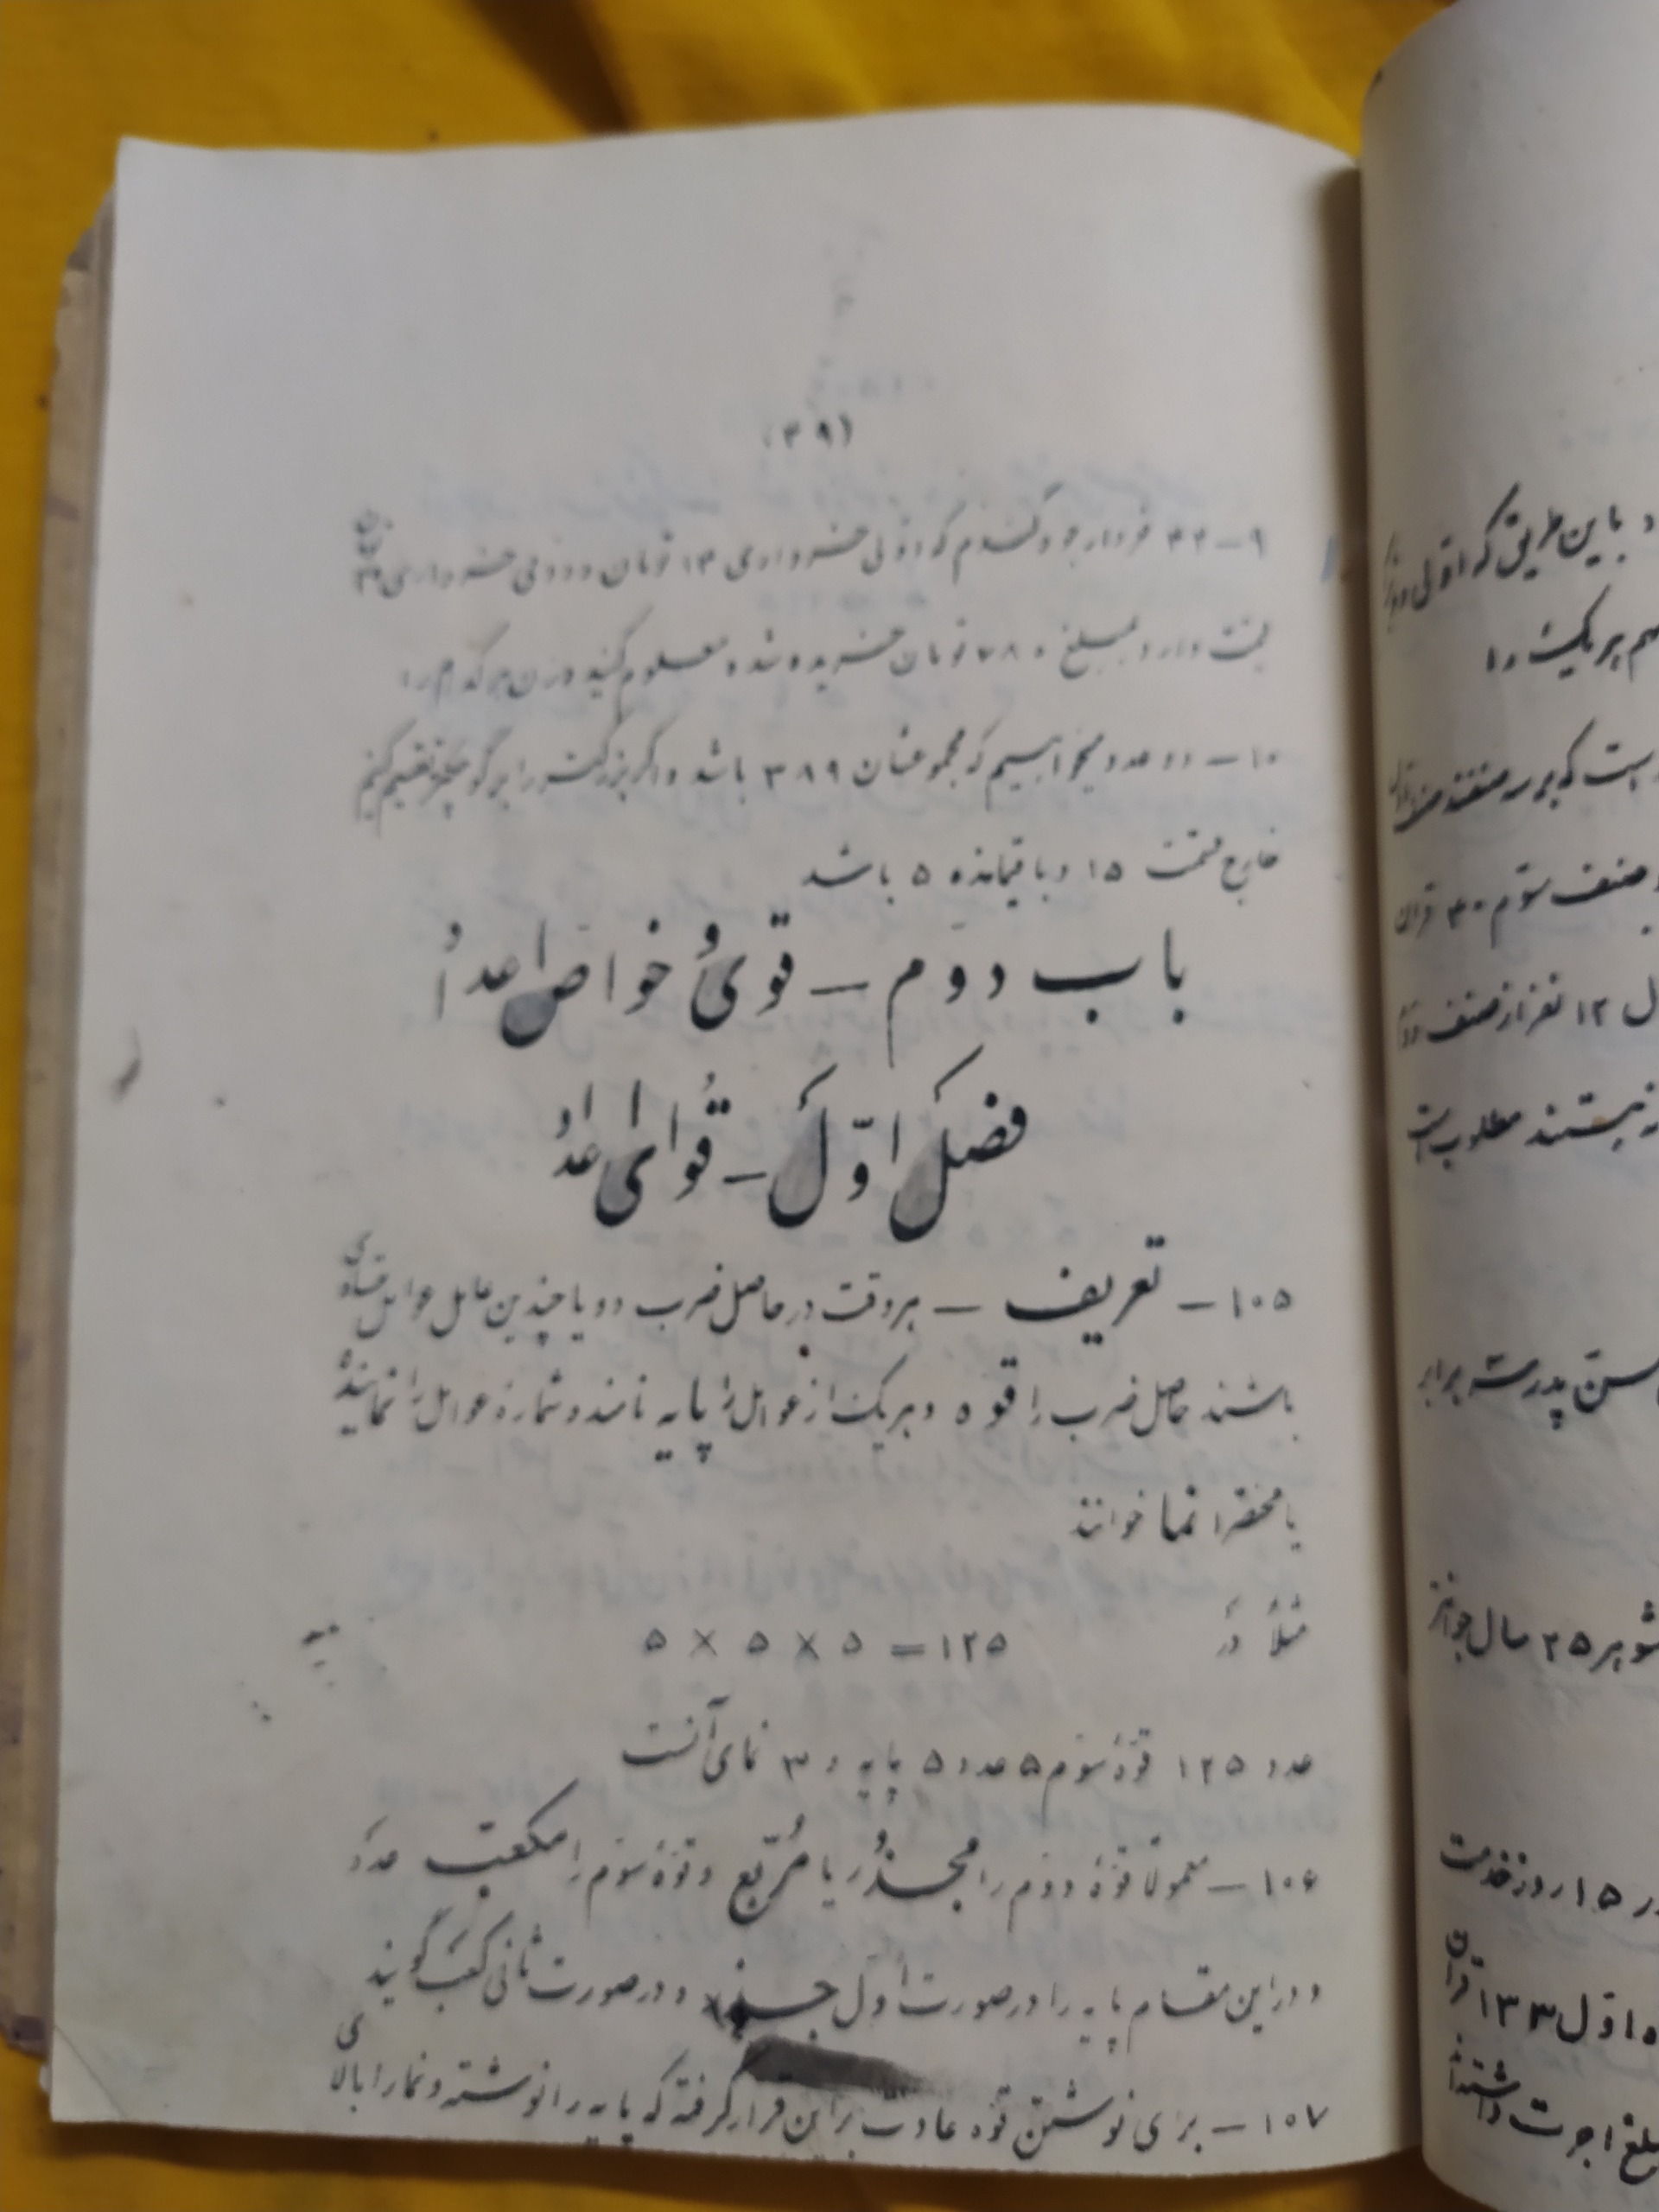 (۳۹)
۹ـ ۴۲ خروار جو و گندم که اولی خرواری ۱۳ تومان و دومی خرواری
قیمت دارد بمبلغ ۷۸۰ تومان خریده شده معلوم کنید وزن هر کدام را
۱۰ـ دو عدد میخواهیم که مجموعشان ۳۸۹ باشد و اگر بزرگتر را بر کوچکتر تقسیم کنیم
خارج قسمت ۱۵ و باقیمانده ۵ باشد
باب دوم ـ قوی و خواص اعداد
فصل اول ـ قوای اعداد
۱۰۵ـ تعریف ـ هر وقت در حاصل ضرب دو یا چندین عامل عوامل متساوی
باشند حاصل ضرب را قوه و هر یک از عوامل را پایه نامند و شماره عوامل را نماینده
یا مختصرا نما خوانند
مثلاً در ۵ × ۵ × ۵ = ۱۲۵
عدد ۱۲۵ قوهٔ سوم ۵ عدد ۵ پایه و ۳ نمای آنست
۱۰۶ـ معمولاً قوهٔ دوم را مجذور یا مربع و قوهٔ سوم را مکعب عدد
و در این مقام پایه را در صورت اول جذر و در صورت ثانی کعب گویند
۱۰۷ـ برای نوشتن قوه عادت بر این قرار گرفته که پایه را نوشته و نما را بالای
د باین طریق که اولی
هم هر یک را
است که هر سه صنف
و صنف سوم ۳۰ قران
ل ۱۲ نفر از صنف دوم
نیستند مطلوب است
سن پدرت برابر
شوهر ۲۵ سال جوانتر
در ۱۵ روز خدمت
ه اول ۱۳۳ قران
مبلغ اجرت داشتند